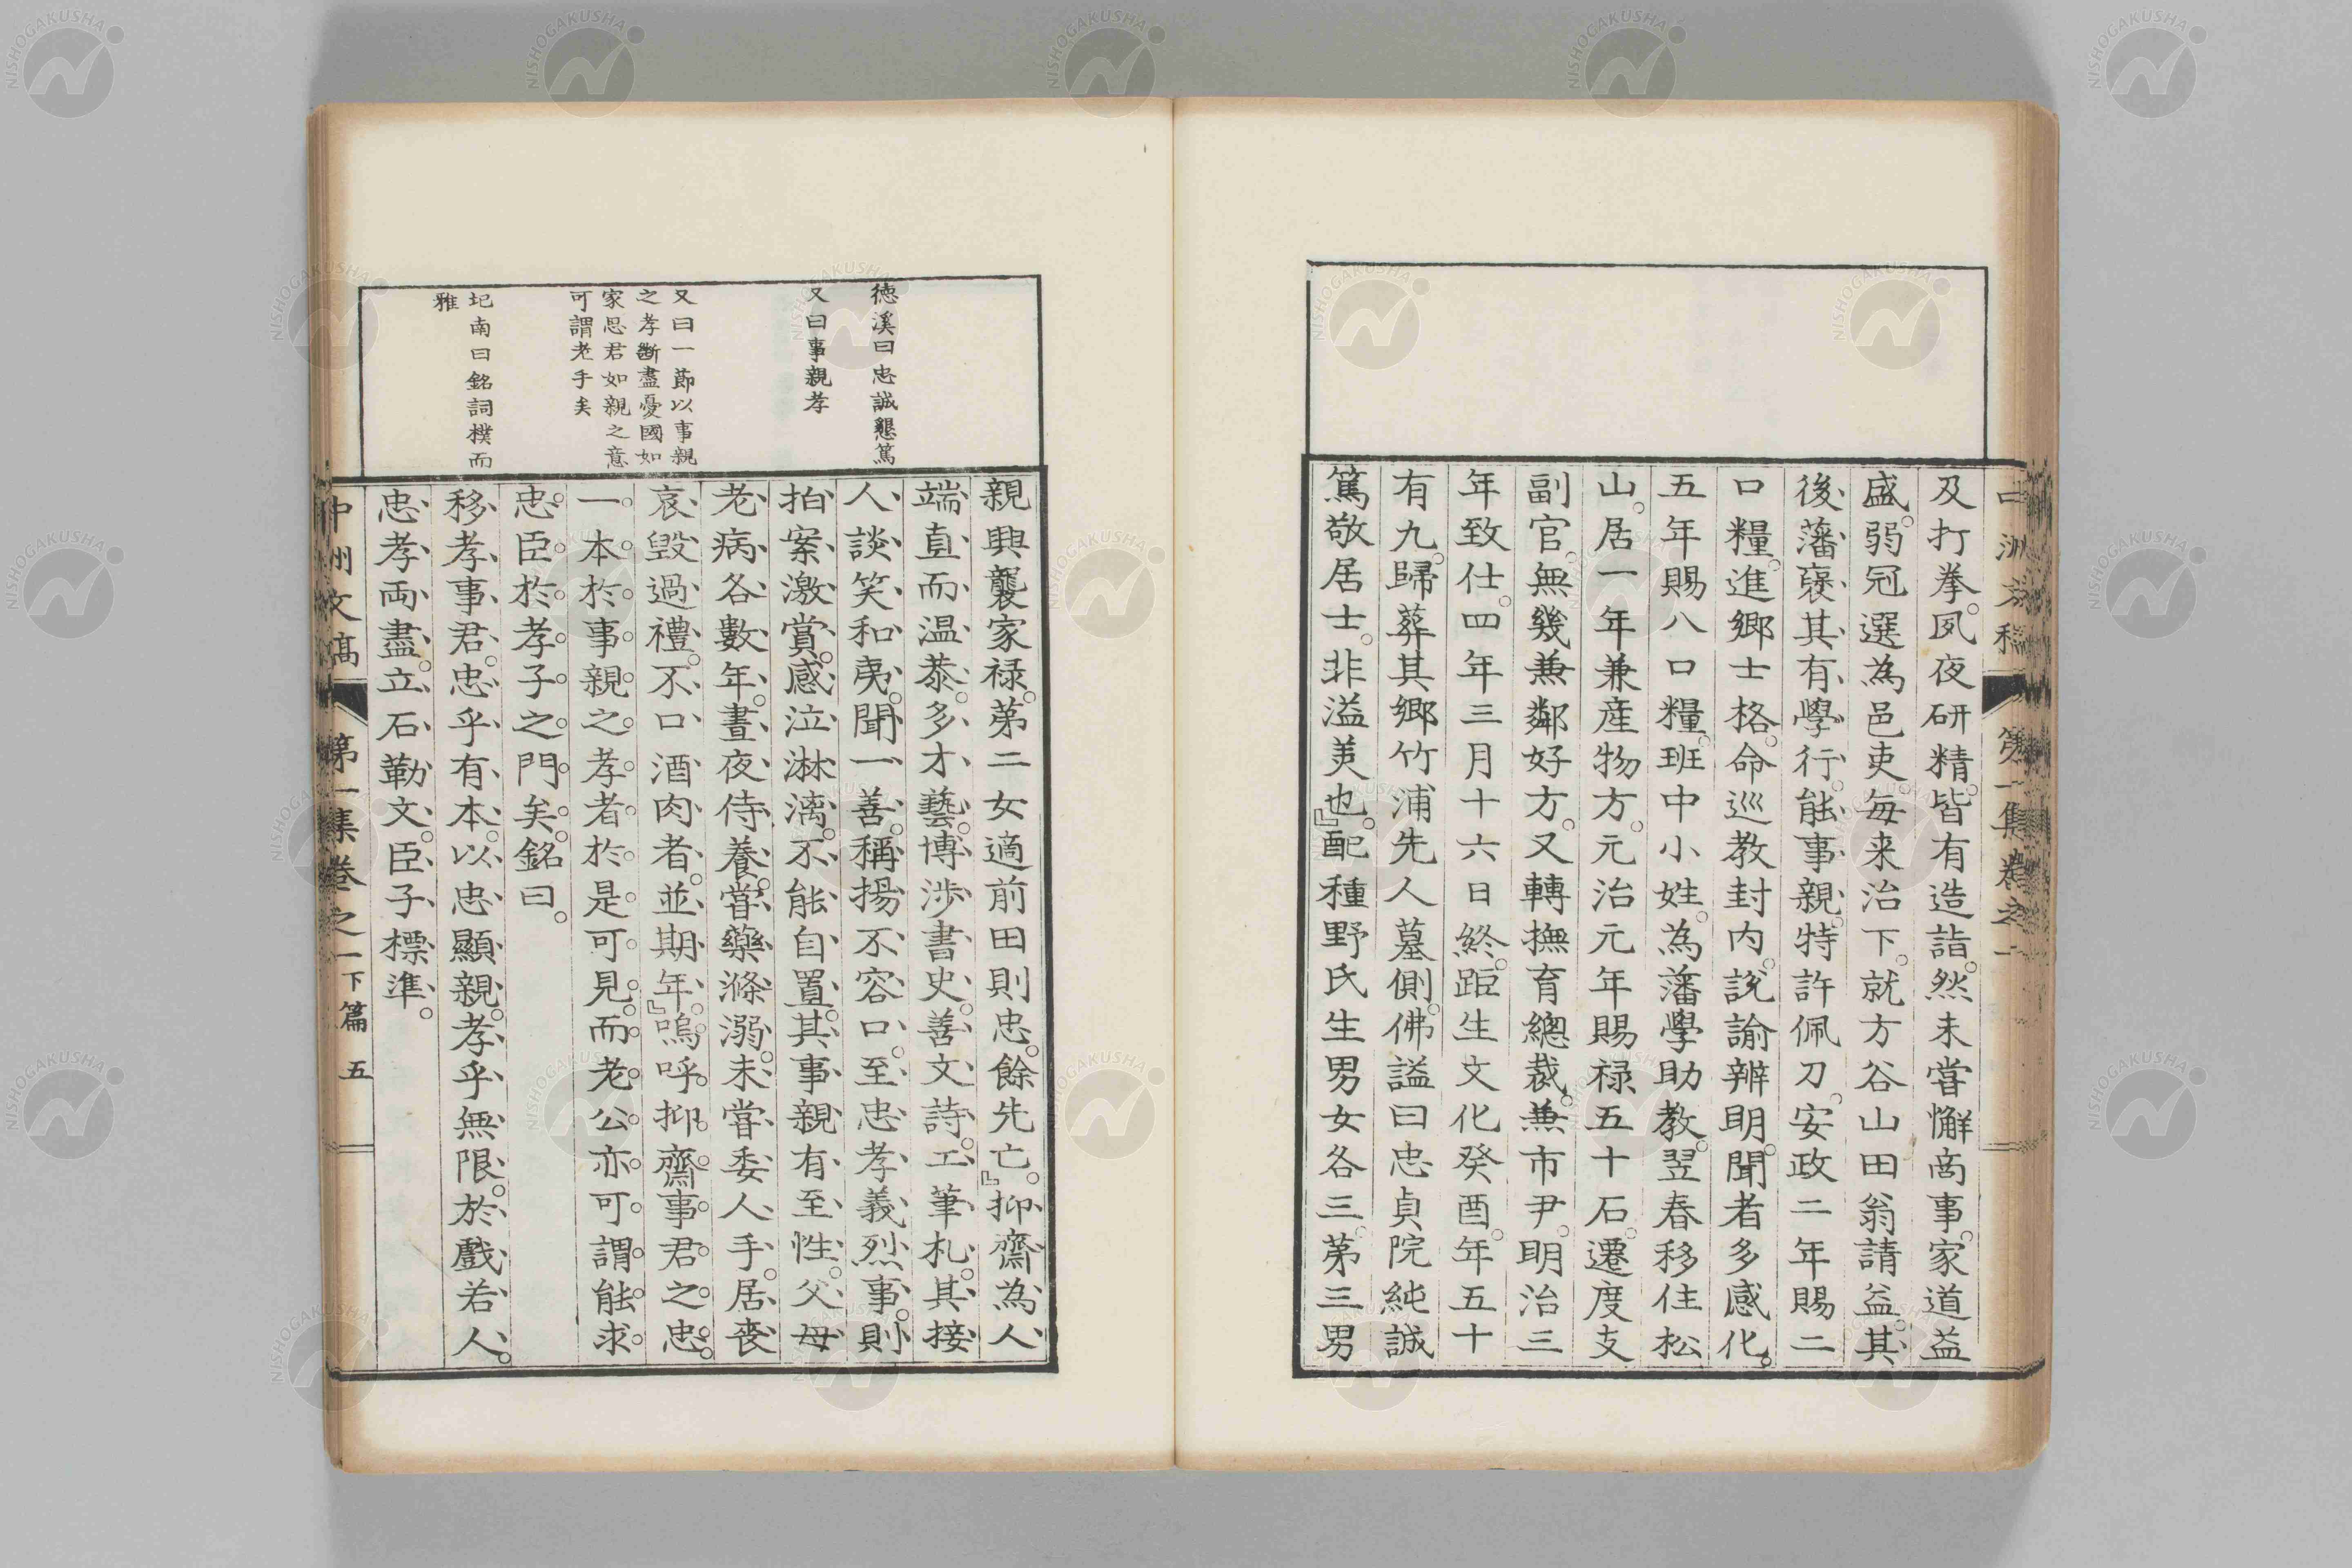 及打拳。夙夜研精。皆有造詣。然未嘗懈啇事。家道益
盛。弱冠選為邑吏。毎来治下。就方谷山田翁請益。其
後藩襃其有學行。能事親。特許佩刀。安政二年賜二
口糧。進郷士格。命巡教封内。説諭辨明。聞者多感化。
五年賜八口糧。班中小姓。為藩學助教。翌春移住松
山。居一年兼産物方。元治元年賜禄五十石。遷度支
副官。無幾兼鄰好方。又轉撫育總裁。兼市尹。明治三
年致仕。四年三月十六日終。距生文化癸酉。年五十
有九。歸葬其郷竹浦先人墓側。佛謚曰忠貞院純誠
篤敬居士。非溢美也。』配種野氏生男女各三。苐三男
親興襲家禄。苐二女適前田則忠。餘先亡。』抑齋為人
端直而温恭。多才藝。博渉書史。善文詩。工筆札。其接
人談笑和夷。聞一善。稱揚不容口。至忠孝義烈事。則
拍案激賞。感泣淋漓。不能自置。其事親有至性。父母
老病各數年。晝夜侍養。嘗藥滌溺。未嘗委人手。居喪
哀毀過禮。不口酒肉者。並期年。』嗚呼抑齋事君之忠。
一本於事親之孝者。於是可見。而老公亦可謂能求
忠臣於孝子之門矣。銘曰。
移孝事君。忠乎有本。以忠顯親。孝乎無限。於戲若人。
忠孝両盡。立石勒文。臣子標準。
徳溪曰忠誠懇篤
又曰事親孝
又曰一節以事親
之孝断盡憂國如
家思君如親之意
可謂老手矣
圯南曰銘詞樸而
雅
中洲文稿 第一集卷之一
中洲文稿 第一集卷之一下篇 五
NISHOGAKUSHA